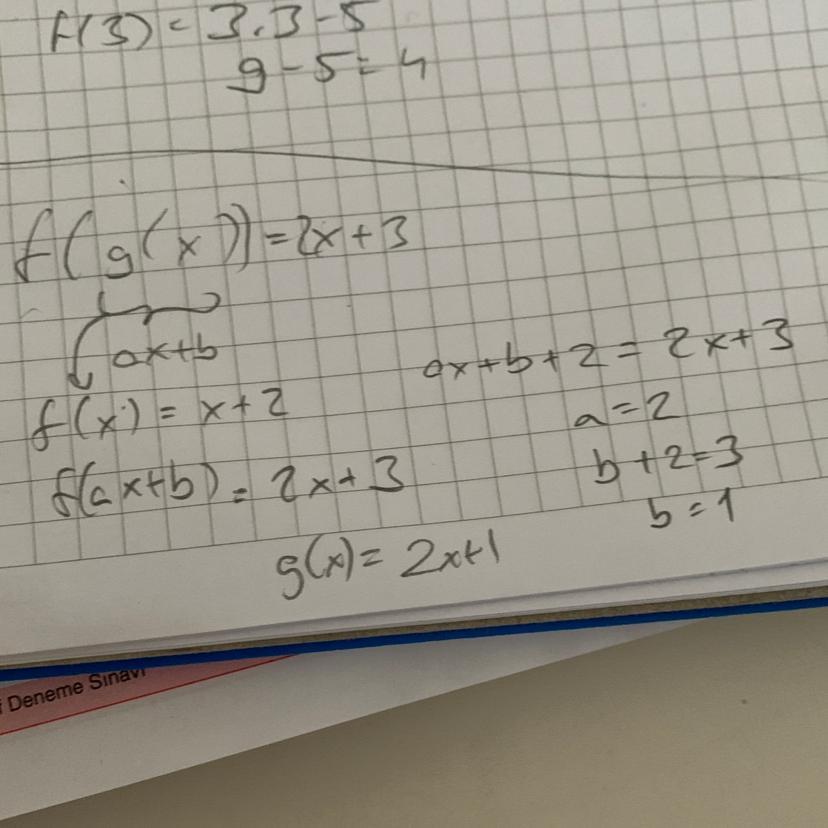 f(3) = 3.3-5
9-5=4
f(g(x))=2x+3
ax+b
f(x) = x+2
f(ax+b) = 2x+3
ax+b+2 = 2x+3
a=2
b+2=3
b=1
g(x)= 2x+1
Deneme Sınavı